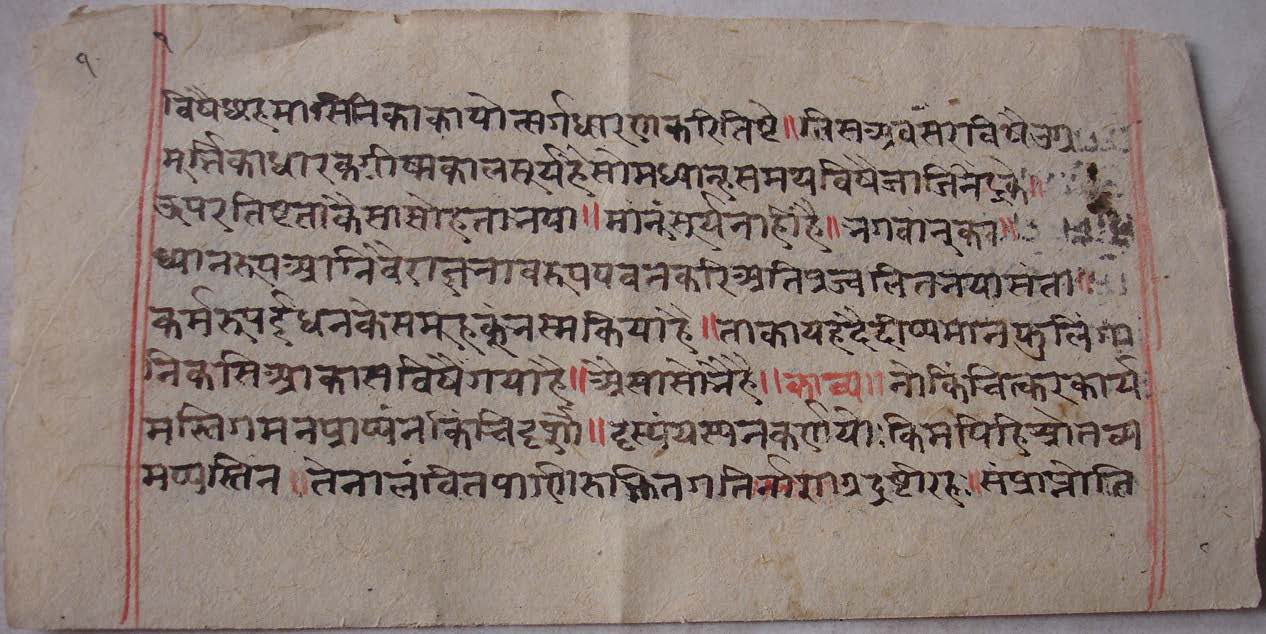 १ १
विषैछहमासनिकाकायोत्सर्गधारणकरितिष्टे॥तिसअवसरविषैउग्र
मूर्त्तिकाधारकग्रीष्मकालसूर्यहैसोमध्यान्हसमयविषैजाजिनेंद्रके॥
ऊपरतिष्टताकैसासोहताभया॥मानूंसूर्यनाहींहै॥भगवानका॥
ध्यानरूपअग्निवैराज्ञभावरूपपवनकरिअतिप्रज्वलितभयासंता॥
कर्मरूपईंधनकेसमूहकूंभस्मकियाहै॥ताकायहदेदीप्यमानफुलिंगा
निकसिआकासविषैगयाहै॥अैसासोभैहै॥काव्य॥नोकिंचित्करकार्य
मस्तिगमनप्राप्यंनकिंचिदृसौ॥दृस्पंयस्यनकर्णयोःकिमपिहिश्रोतव्य
मप्यस्तिन॥तेनालंवितपाणीरुझ्झितगतिर्नासाग्रदृष्टीरहः॥संप्राप्तोति